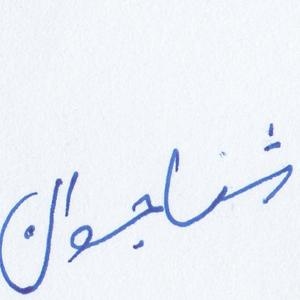 شناجوان